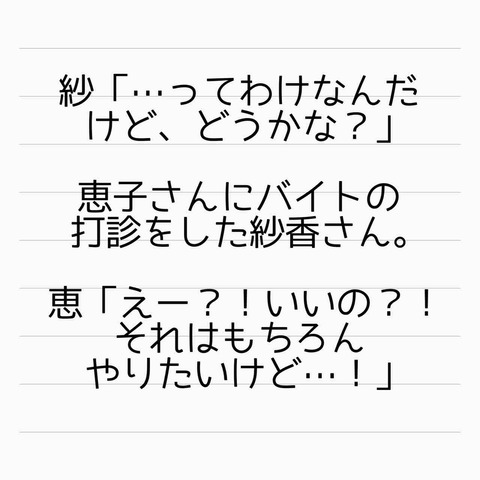 紗「…ってわけなんだ
けど、どうかな？」
恵子さんにバイトの
打診をした紗香さん。
恵「えー？！いいの？！
それはもちろん
やりたいけど…！」